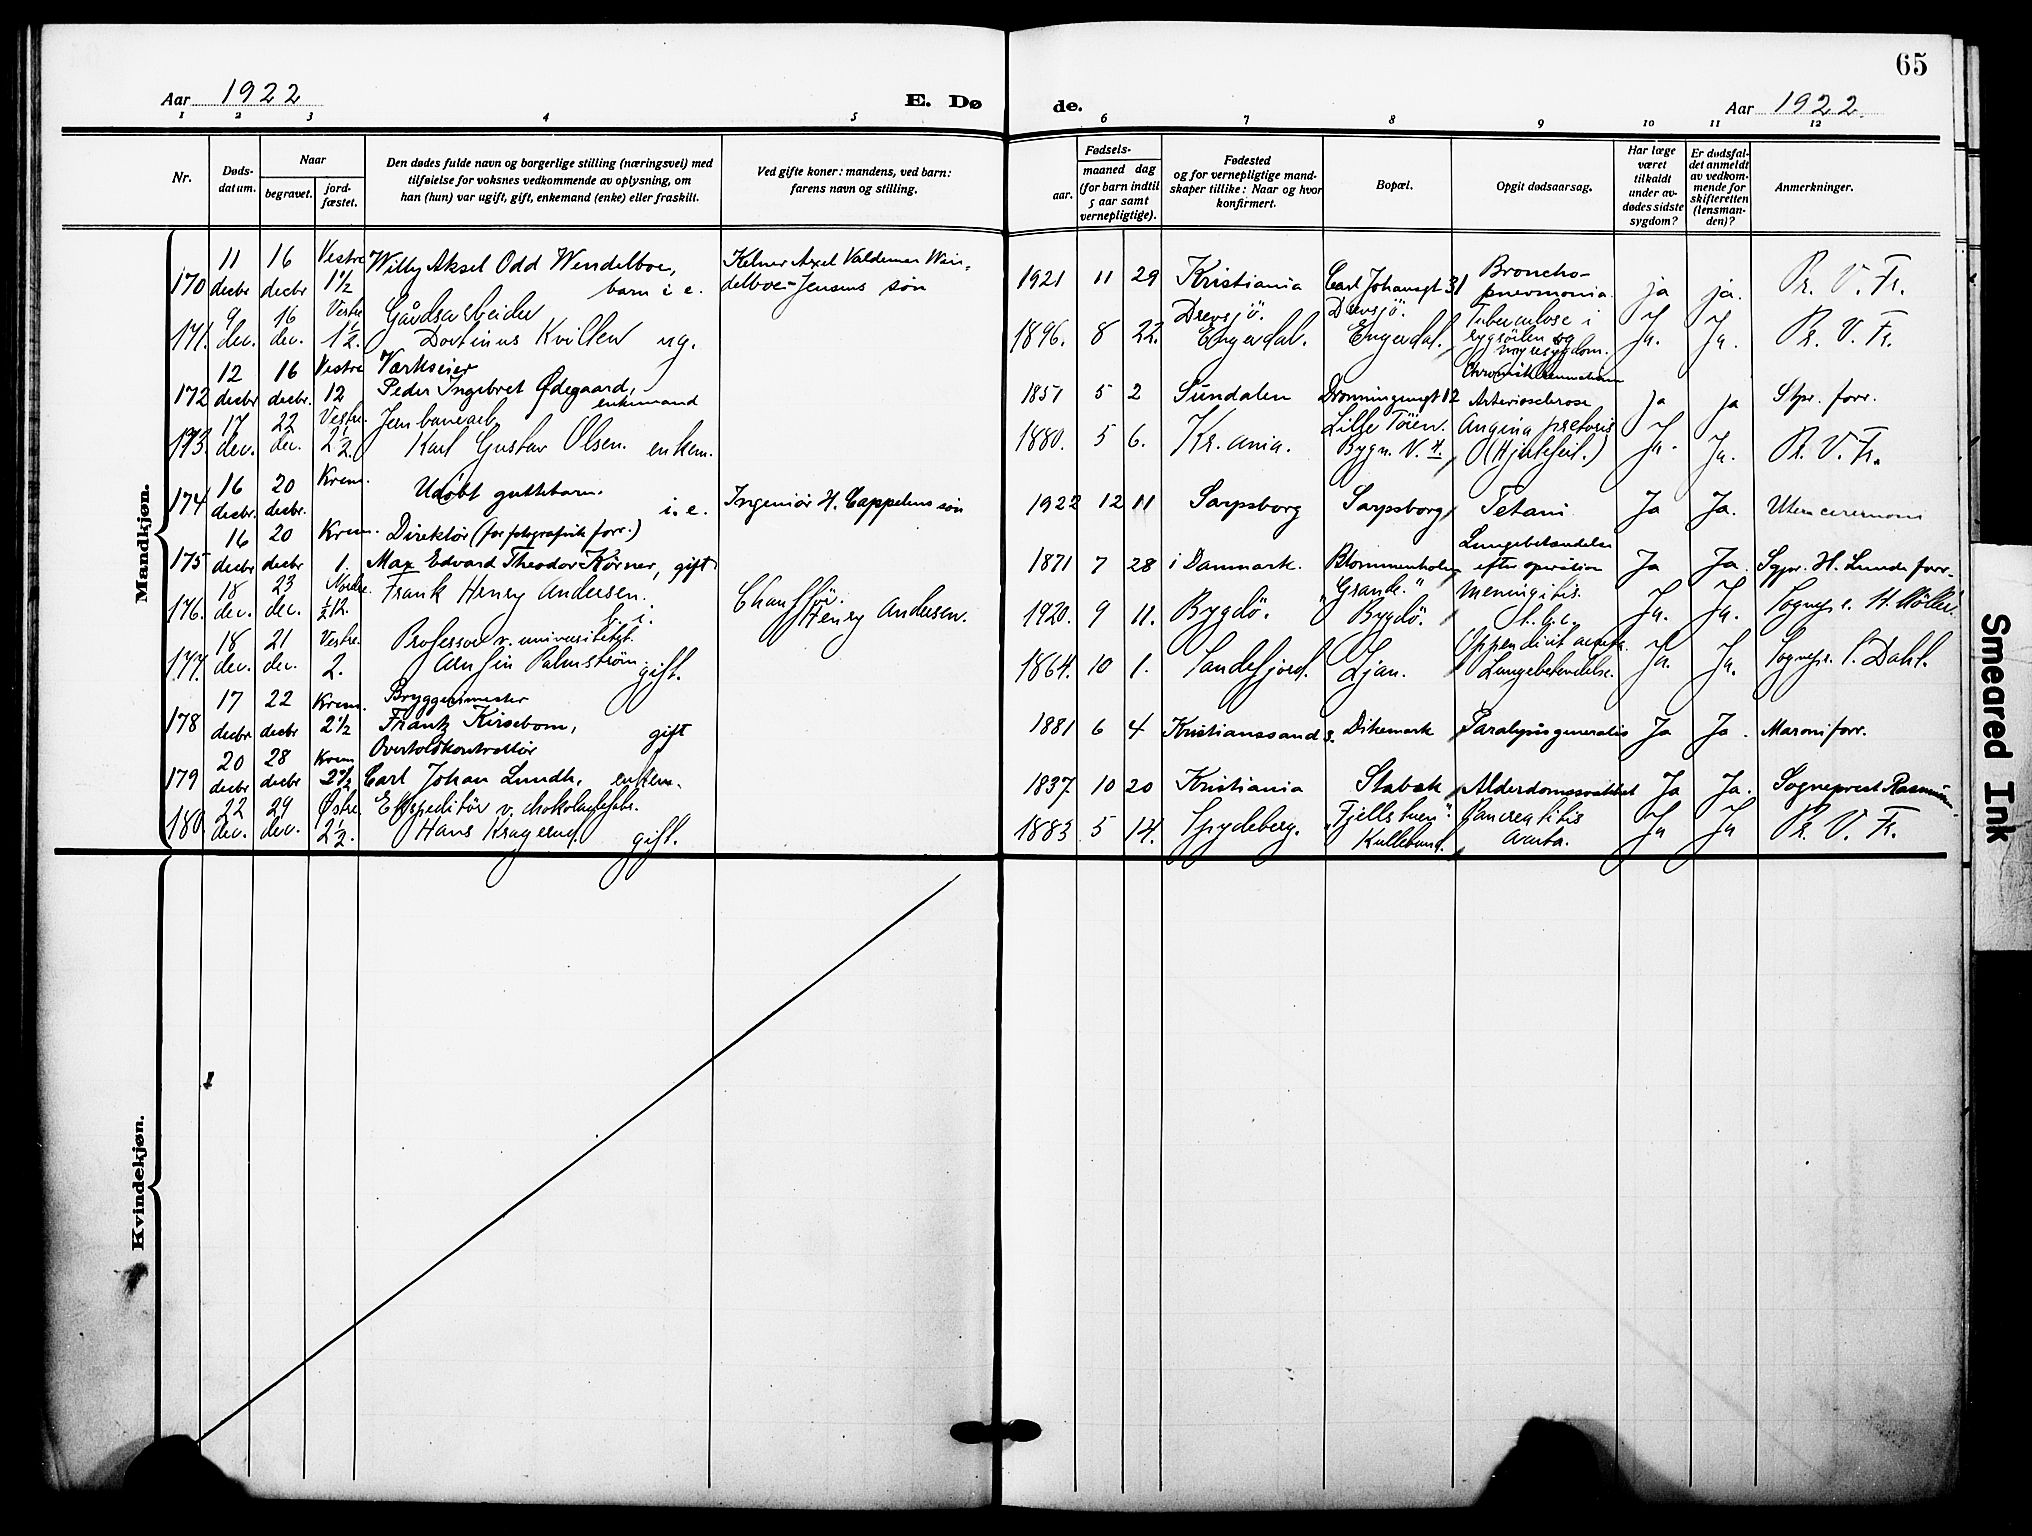 65
Aar 1922
E. Dø
de.
Aar 1922.
1 2 3 4 5 6 7 8 9 10 11 12
Nr.
Døds-
datum.
Naar
begravet.
jord-
fæstet.
Den dødes fulde navn og borgerlige stilling (næringsvei) med
tilføielse for voksnes vedkommende av oplysning, om
han (hun) var ugift, gift, enkemand (enke) eller fraskilt.
Ved gifte koner: mandens, ved barn:
farens navn og stilling.
Fødsels-
aar.
maaned dag
(for barn indtil
5 aar samt
vernepligtige).
Fødested
og for vernepligtige mand-
skaper tillike: Naar og hvor
konfirmert.
Bopæl.
Opgit dødsaarsag.
Har læge
været
tilkaldt
under av-
dødes sidste
sygdom?
Er dødsfal-
det anmeldt
av vedkom-
mende for
skifteretten
(lensman-
den)?
Anmerkninger.
Mandkjøn.
11 16 Vestre Willy Aksel Odd Wendelboe, Kelner Axel Valdemar Wen- Broncho-
170 decbr decbr 1 1/2 barn i e. delboe-Jensens søn 1921 11 29 Kristiania Carl Johansgt 31 pneumonia. ja ja. Pr. V. Fr.
9 16 Vestre Gårdsarbeider Drevsjö. Drevsjö. Tuberculose i
171. dec. dec. 1 1/2. Dortinus Kvillen ug. 1896. 8 22. Engerdal. Engerdal. rygsöilen og Ja. Ja. Pr. V. Fr.
nyresygdom.
12 16 Vestre Værkseier
172 decbr decbr. 12 Peder Ingebret Ødegaard, enkemand 1851 5 2 Sundalen Dronningensgt 12 Arteriosclerose ja ja Stpr. forr.
17 22 Vestre. Lille Töien. Angina pectoris
173. dec. dec. 2 1/2. Karl Gustav Olsen. enkem. 1880. 5 6. Kr.ania. Bygn. V. (Hjertefeil.) Ja. Ja. Pr. V. Fr.
16 20 Krem. Udøbt guttebarn.
174 decbr. decbr. i. e. Ingeniør H. Cappelens søn 1922 12 11 Sarpsborg Sarpsborg Tetani Ja Ja. Uten ceremoni
16 20 Krem. Direktør (for fotografisk forr.) Lungebetændelse
175 decbr decbr 1. Max Edvard Theodor Körner, gift 1871 7 28 i Danmark. Blommenholm efter operation Ja Ja. Sgpr. H. Lunde forr.
18 23 Nordre. Frank Henry Andersen. Chauffør. "Grande." Meningitis.
176. dec. dec. 1/2 12. Henry Andersen. 1920. 9 11. Bygdö. Bygdö. Ja. Ja. Sognepr. H. Möller.
18 21 Vestre. Professor v. universitetet. Appendicit acuta.
177. dec. dec. 2. Arnfin Palmstrøm. gift. 1864. 10 1. Sandefjord. Ljan. Lungebetændelse. Ja. Ja. Sognepr. Dahl.
17 22 Krem. Bryggermester
178 decbr decbr 2 1/2 Frantz Kirsebom, gift 1881 6 4 Kristianssand S. Dikemark Paralysis generalis Ja Ja. Maroni forr.
20 28 Krem Overtoldkontrollør
179 decbr decbr 2 1/2 Carl Johan Lundh, enkem. 1837. 10 20 Kristiania Stabæk Alderdomssvakhet Ja Ja. Sogneprest
22 29 Østre. Ekspeditör v. chokoladefabr. "Fjellstuen". Pancreatitis
180. dec. dec. 2 1/2. Hans Kragerud. gift. 1883 5 14. Spydeberg. Kullebund. acuta. Ja Ja Pr. V. Fr.
Kvindekjøn.
Smeared Ink